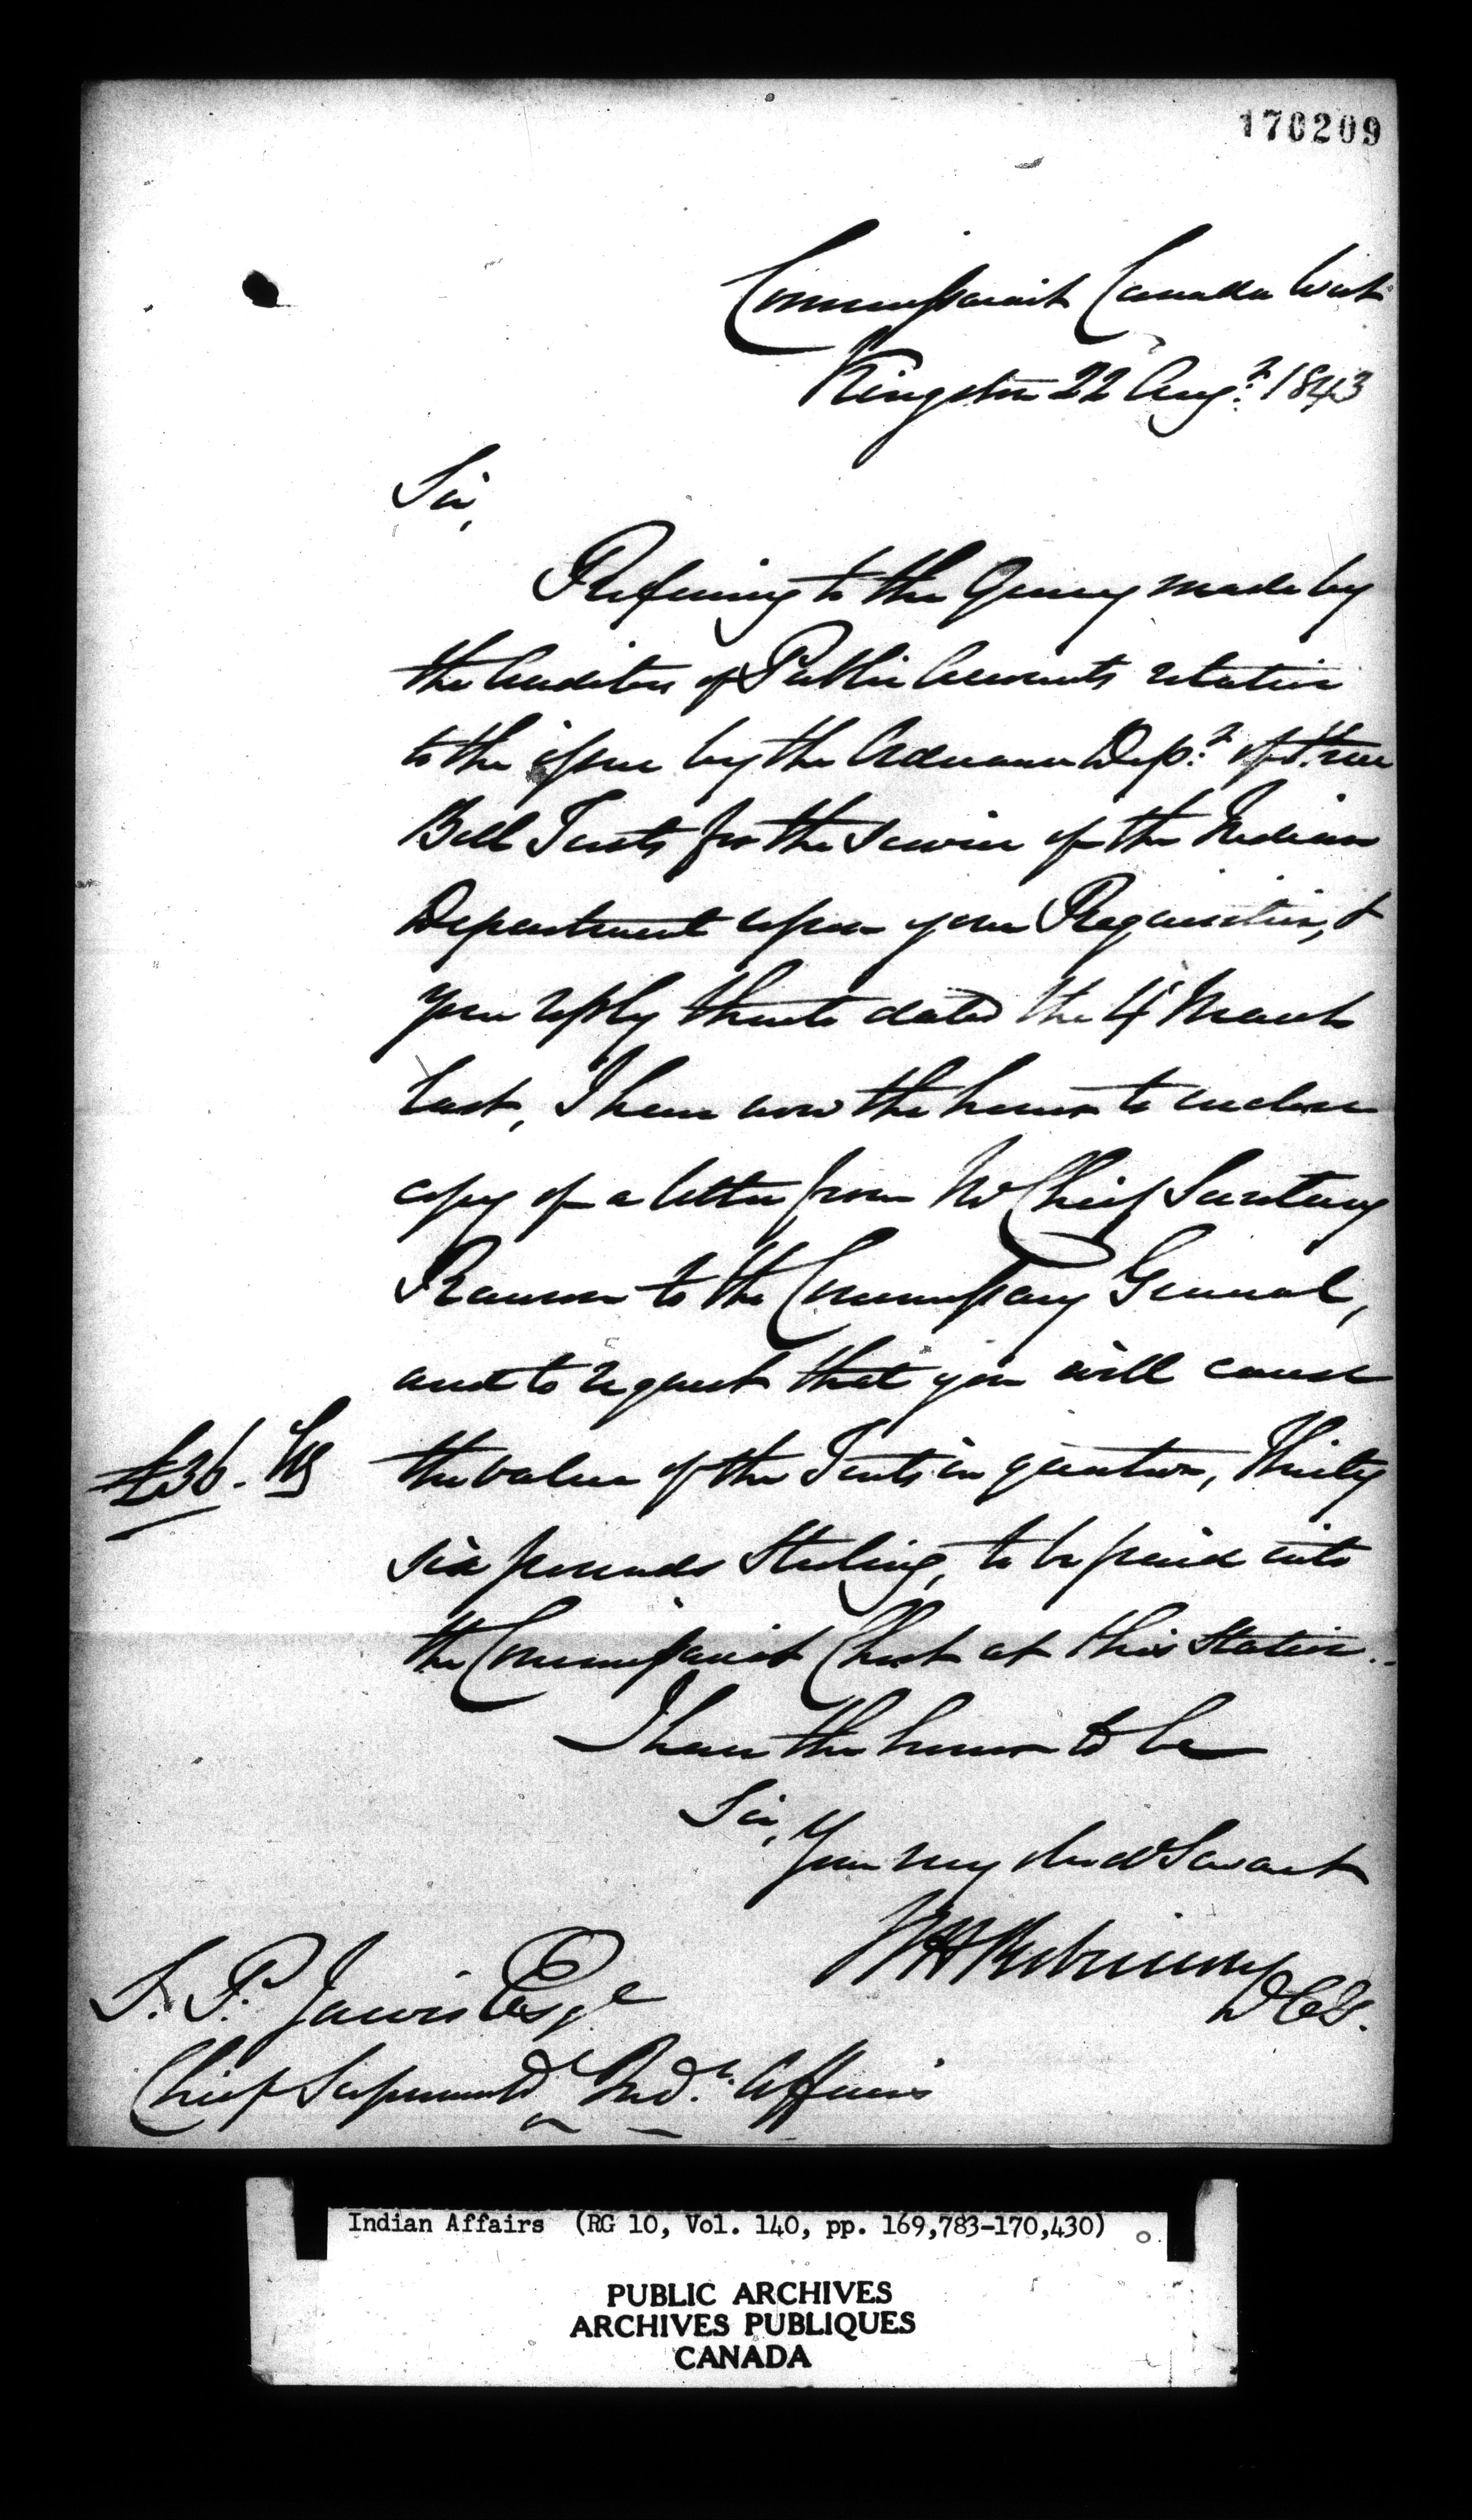 170209
Commissariat Canada West
Kingston 22 Augt. 1843
Sir,
Referring to the Query made by
the Auditors of Public Accounts relative
to the issue by the Ordnance Dept. of three
Bell Tents for the Service of the Indian
Department upon your Requisition, &
your reply thereto dated the 4 March
last, I have now the honor to enclose
copy of a letter from Mr Chief Secretary
Rawson to the Commissary General,
and to request that you will cause
£36. Stg
the value of the Tents in question, Thirty
six pounds Sterling, to be paid into
the Commissariat Chest at this Station.
I have the honor to be
Sir,
Your very obed Servant
W H Robinson
D C G.
S. P. Jarvis Esqe
Chief Superintdt Indn. Affairs
Indian Affairs (RG 10, Vol. 140, pp. 169,783-170,430)
PUBLIC ARCHIVES
ARCHIVES PUBLIQUES
CANADA